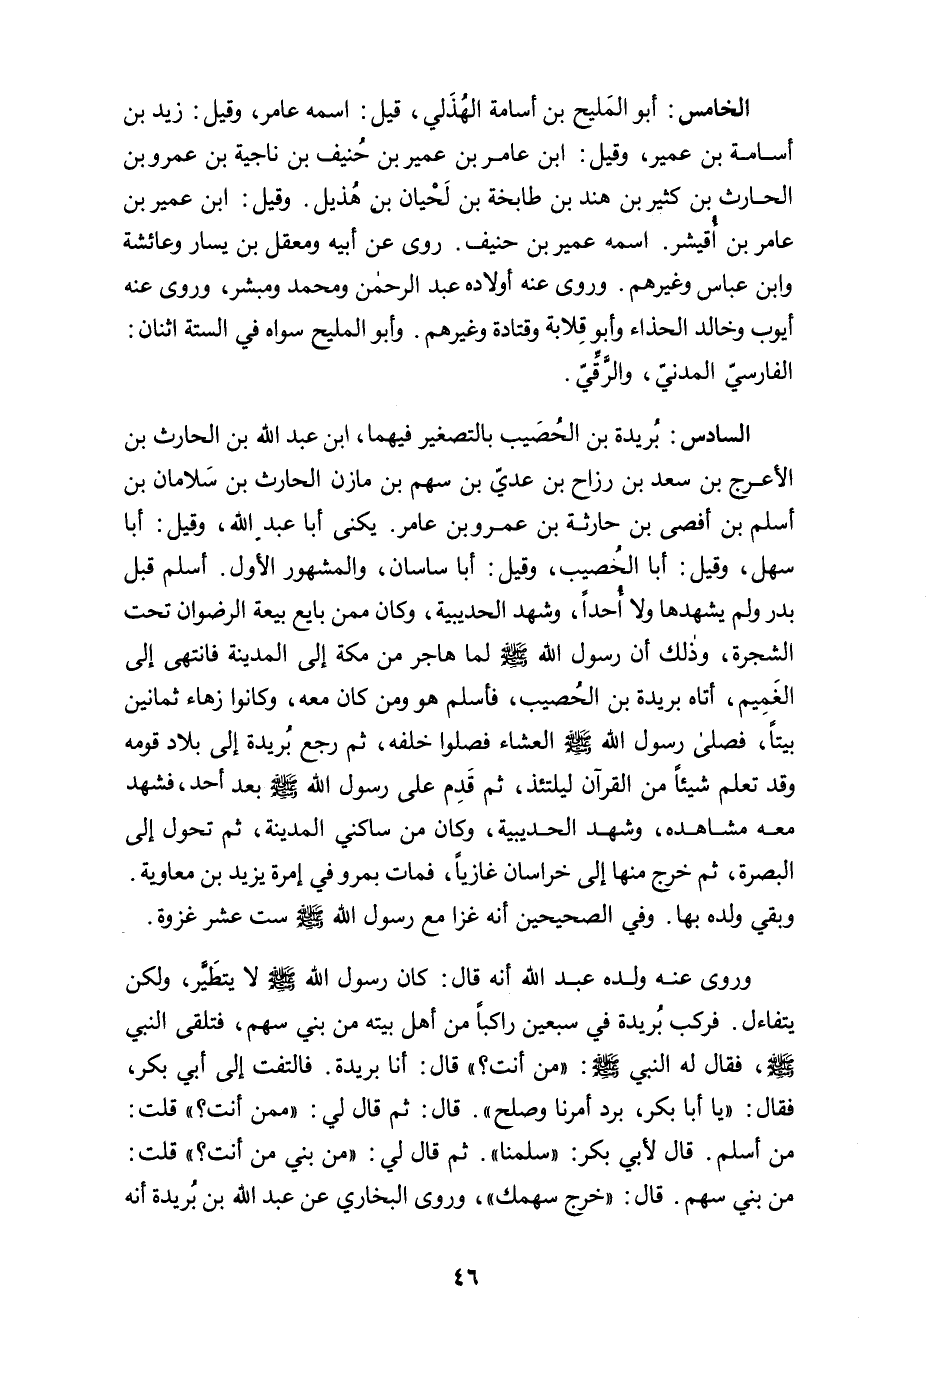 الخامس: أبو المَليح بن أسامة الهُذَلي، قيل: اسمه عامر، وقيل: زيد بن
أسامة بن عمير، وقيل: ابن عامر بن عمير بن حُنيف بن ناجية بن عمرو بن
الحارث بن كثير بن هند بن طابخة بن لَحْيان بن هُذيل. وقيل: ابن عمير بن
عامر بن أُقيشر. اسمه عمير بن حنيف. روى عن أبيه ومعقل بن يسار وعائشة
وابن عباس وغيرهم. وروى عنه أولاده عبد الرحمٰن ومحمد ومبشر، وروى عنه
أيوب وخالد الحذاء وأبو قِلابة وقتادة وغيرهم. وأبو المليح سواه في الستة اثنان:
الفارسيّ المدنيّ، والرَّقِّيّ.
السادس: بُريدة بن الحُصَيب بالتصغير فيهما، ابن عبد الله بن الحارث بن
الأعرج بن سعد بن رزاح بن عديّ بن سهم بن مازن الحارث بن سَلامان بن
أسلم بن أفصى بن حارثة بن عمرو بن عامر. يكنى أبا عبد الله، وقيل: أبا
سهل، وقيل: أبا الحُصيب، وقيل: أبا ساسان، والمشهور الأول. أسلم قبل
بدر ولم يشهدها ولا أُحداً، وشهد الحديبية، وكان ممن بايع بيعة الرضوان تحت
الشجرة، وذٰلك أن رسول الله ﷺ لما هاجر من مكة إلى المدينة فانتهى إلى
الغَمِيم، أتاه بريدة بن الحُصيب، فأسلم هو ومن كان معه، وكانوا زهاء ثمانين
بيتاً، فصلىٰ رسول الله ﷺ العشاء فصلوا خلفه، ثم رجع بُريدة إلى بلاد قومه
وقد تعلم شيئاً من القرآن ليلتئذ، ثم قَدِم على رسول الله ﷺ بعد أحد، فشهد
معه مشاهده، وشهد الحديبية، وكان من ساكني المدينة، ثم تحول إلى
البصرة، ثم خرج منها إلى خراسان غازياً، فمات بمرو في إمرة يزيد بن معاوية.
وبقي ولده بها. وفي الصحيحين أنه غزا مع رسول الله ﷺ ست عشر غزوة.
وروى عنه ولده عبد الله أنه قال: كان رسول الله ﷺ لا يتطَيَّر، ولكن
يتفاءل. فركب بُريدة في سبعين راكباً من أهل بيته من بني سهم، فتلقى النبي
ﷺ، فقال له النبي ﷺ: «من أنت؟» قال: أنا بريدة. فالتفت إلى أبي بكر،
فقال: «يا أبا بكر، برد أمرنا وصلح». قال: ثم قال لي: «ممن أنت؟» قلت:
من أسلم. قال لأبي بكر: «سلمنا». ثم قال لي: «من بني من أنت؟» قلت:
من بني سهم. قال: «خرج سهمك»، وروى البخاري عن عبد الله بن بُريدة أنه
٤٦